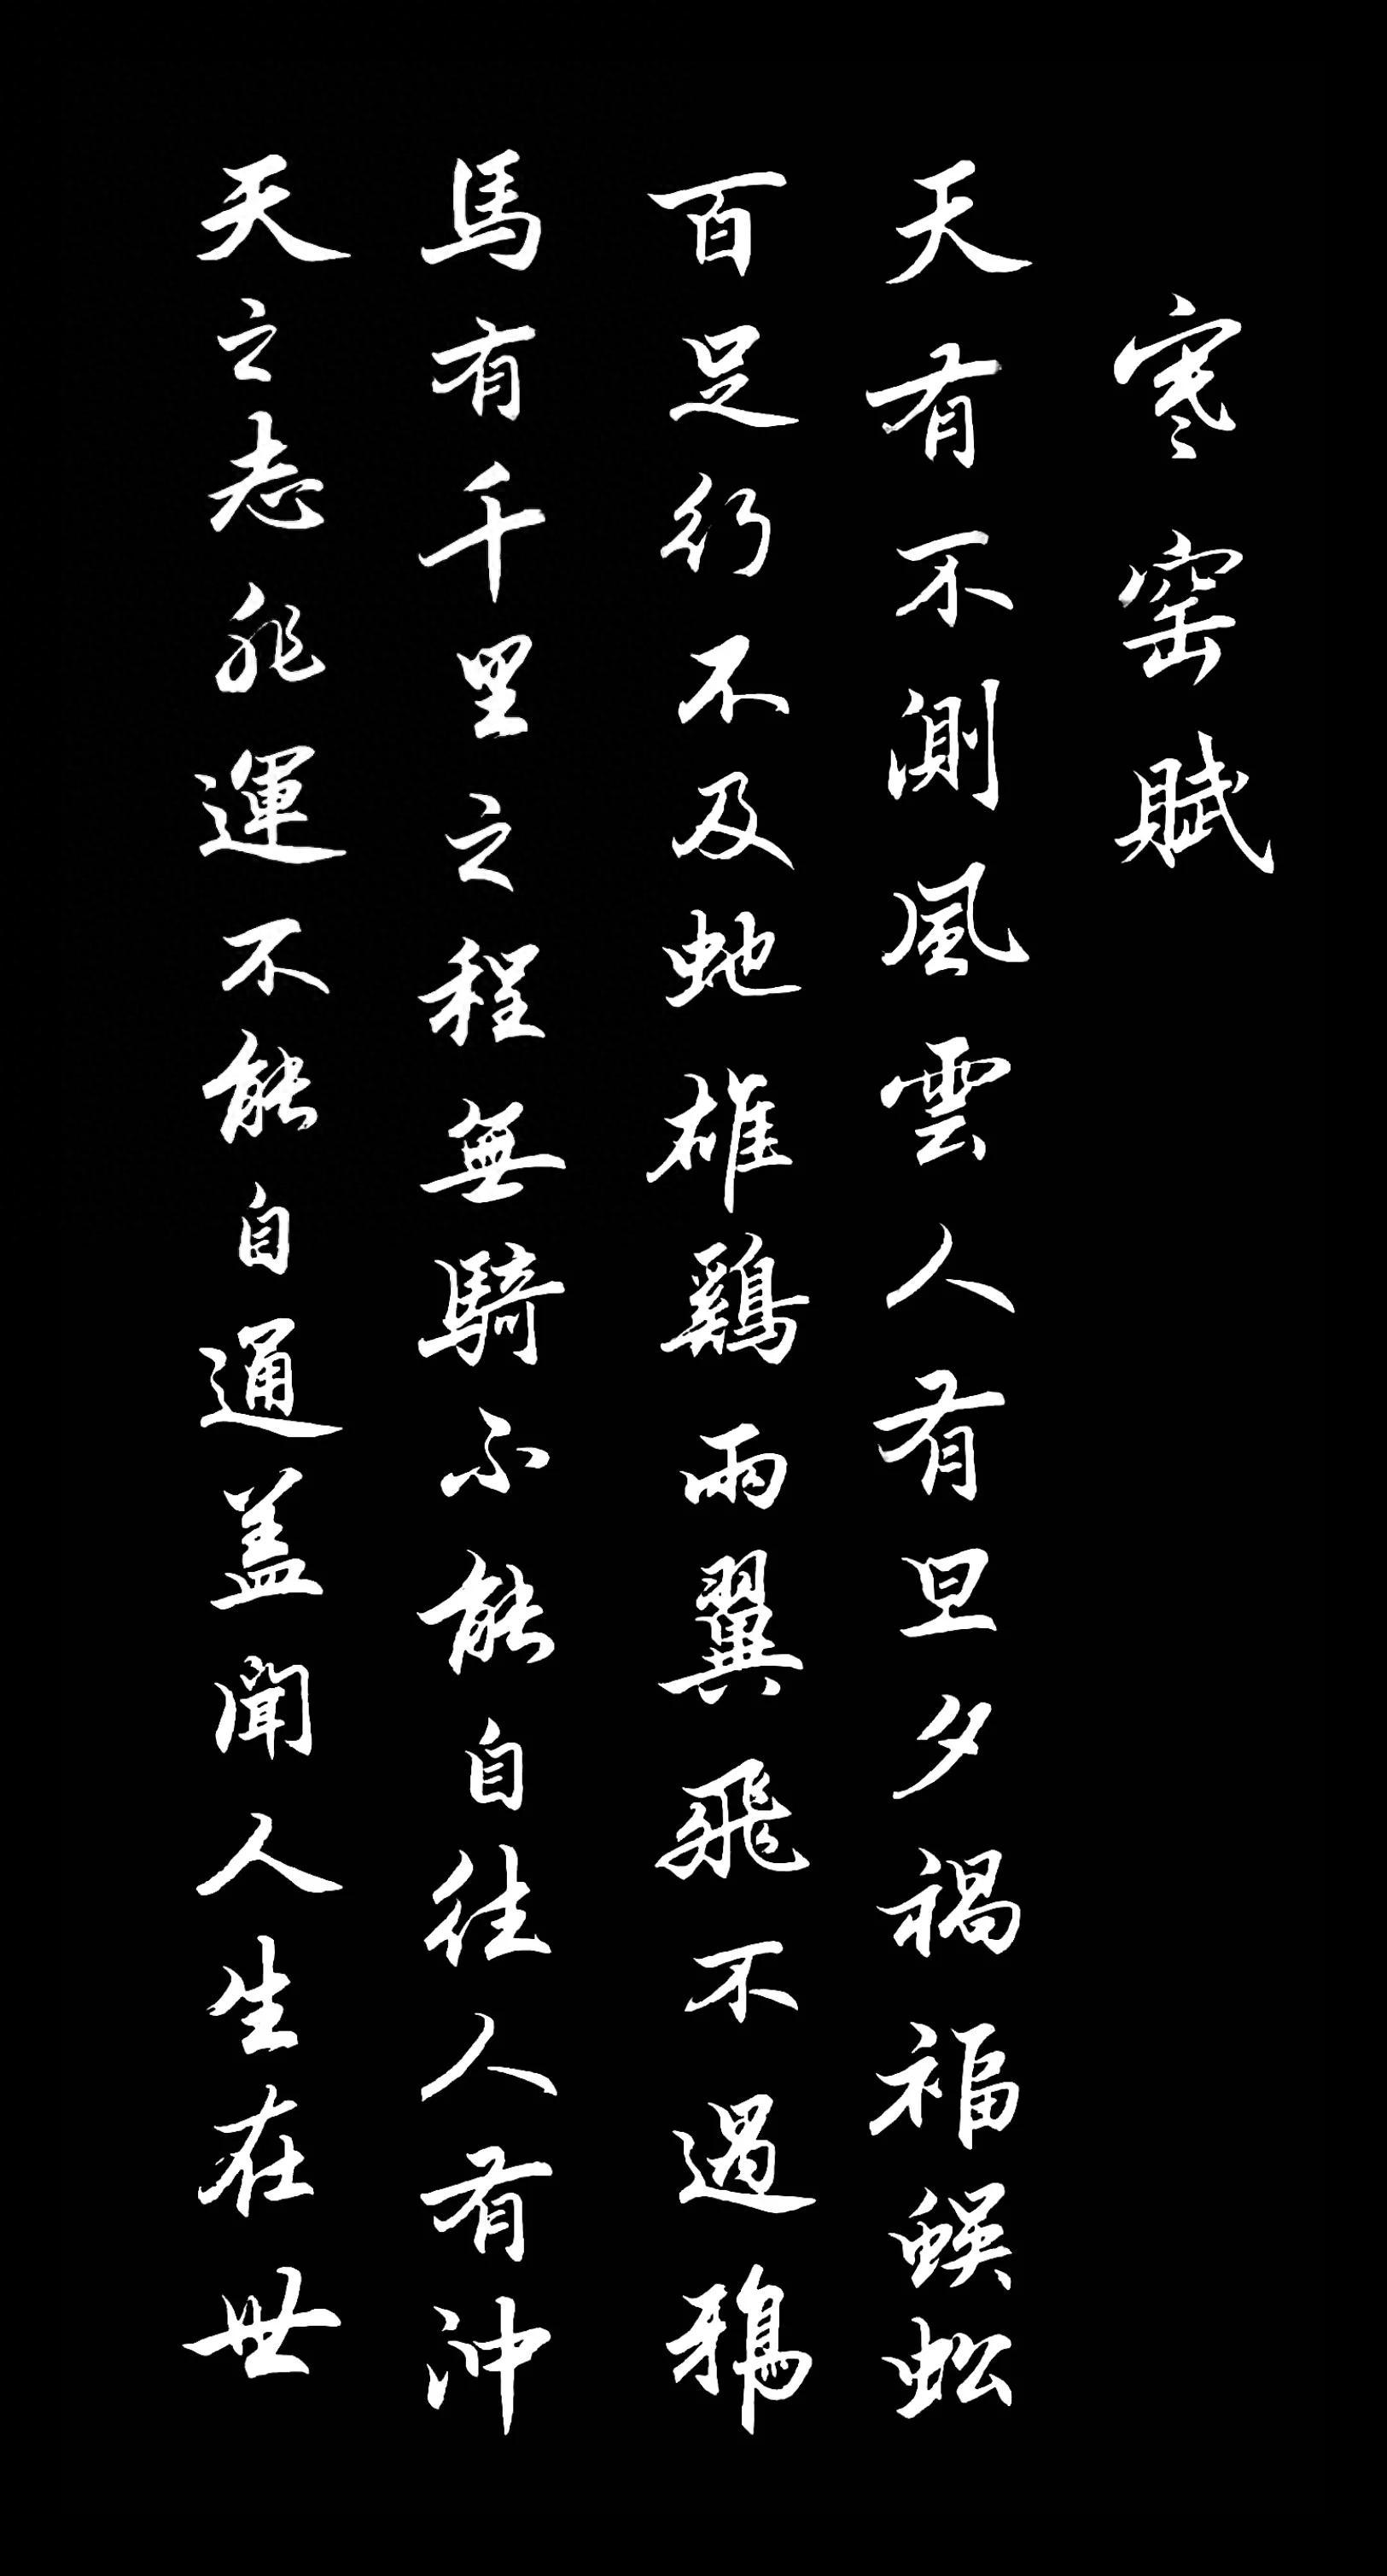 寒窑賦
天有不測風雲人有旦夕禍福蜈蚣
百足行不及蛇雄鷄兩翼飛不過鴉
馬有千里之程無騎不能自往人有沖
天之志非運不能自通盖聞人生在世